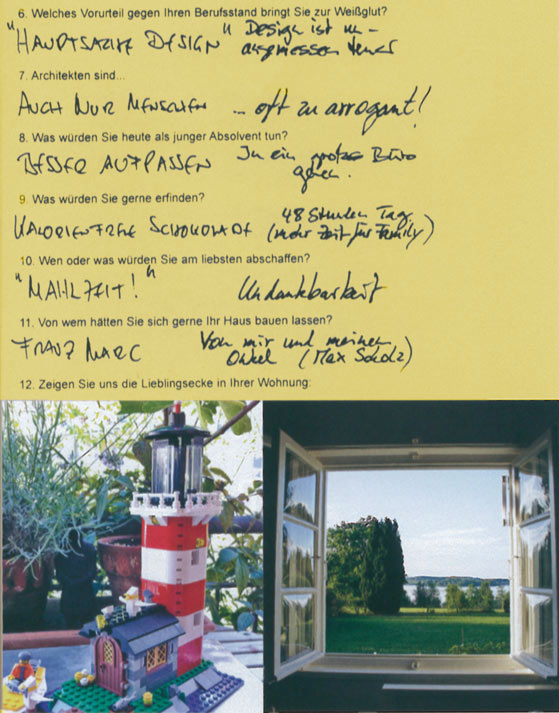 6. Welches Vorurteil gegen Ihren Berufsstand bringt Sie zur Weißglut?
"HAUPTSACHE DESIGN" Design ist un-
angemessen teuer
7. Architekten sind...
AUCH NUR MENSCHEN ... oft zu arrogant!
8. Was würden Sie heute als junger Absolvent tun?
BESSER AUFPASSEN In ein großes Büro
gehen.
9. Was würden Sie gerne erfinden?
KALORIENFREIE SCHOKOLADE 48 Stunden Tag
(mehr Zeit für Family)
10. Wen oder was würden Sie am liebsten abschaffen?
"MAHLZEIT!" Undankbarkeit
11. Von wem hätten Sie sich gerne Ihr Haus bauen lassen?
FRANZ MARC Von mir und meinem
Onkel (Max Scholz)
12. Zeigen Sie uns die Lieblingsecke in Ihrer Wohnung: